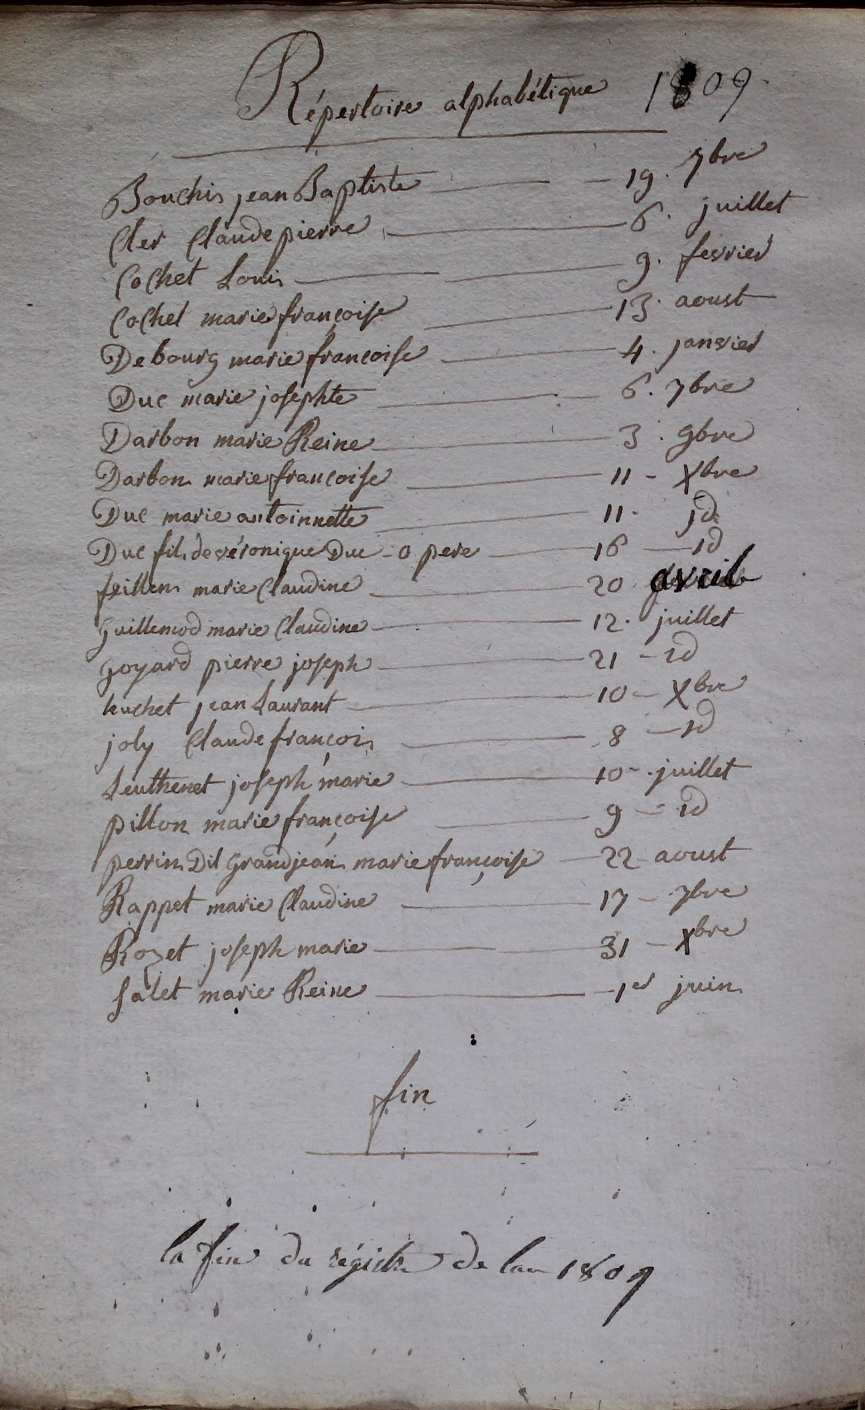 Répertoire alphabétique 1809
Bouchis jean Baptiste 19. 7bre
Cler Claude pierre 6. juillet
Cochet Louis 9. fevrier
Cochet marie françoise 13. aoust
De bourg marie françoise 4. janvier
Duc marie josephte 6. 7bre
Darbon marie Reine 3. 9bre
Darbon marie françoise 11 - Xbre
Duc marie antoinnette 11. id
Duc fils de véronique Duc - o pere 16 - id
feillens marie Claudine 20 avril
guillemod marie Claudine 12. juillet
goyard pierre joseph 21 - id
huchet jean Laurant 10 - Xbre
joly Claude françois 8 - id
Leuthenet joseph marie 10 - juillet
pillon marie françoise 9 - id
perrin Dit Grandjean marie françoise 22 aoust
Rappet marie Claudine 17 - 7bre
Rozet joseph marie 31 - Xbre
Salet marie Reine 1er juin
fin
la fin du régistre de lan 1809